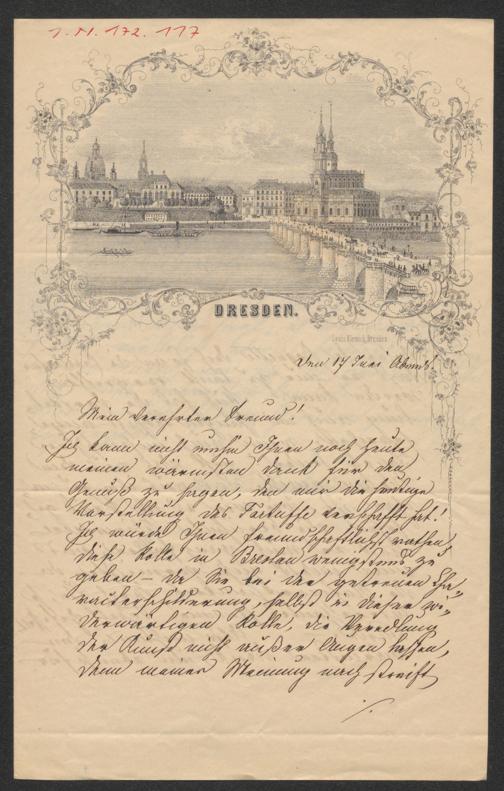 J. N. 172. 117
DRESDEN.
den 17 Juni Abends.
Mein verehrter Freund!
Ich kann nicht umhin Ihnen noch heute
meinen wärmsten Dank für den
Genuß zu sagen, den mir die heutige
Vorstellung des Tartuffe verschafft hat!
Ich würde Ihnen freundschaftlichst rathen,
diese Rolle in Breslau wenigstens zu
geben – da Sie bei der getreuen Cha-
rakterschilderung, selbst in dieser wi-
derwärtigen Rolle, die Veredlung
der Kunst nicht außer Augen lassen,
denn meiner Meinung nach streift